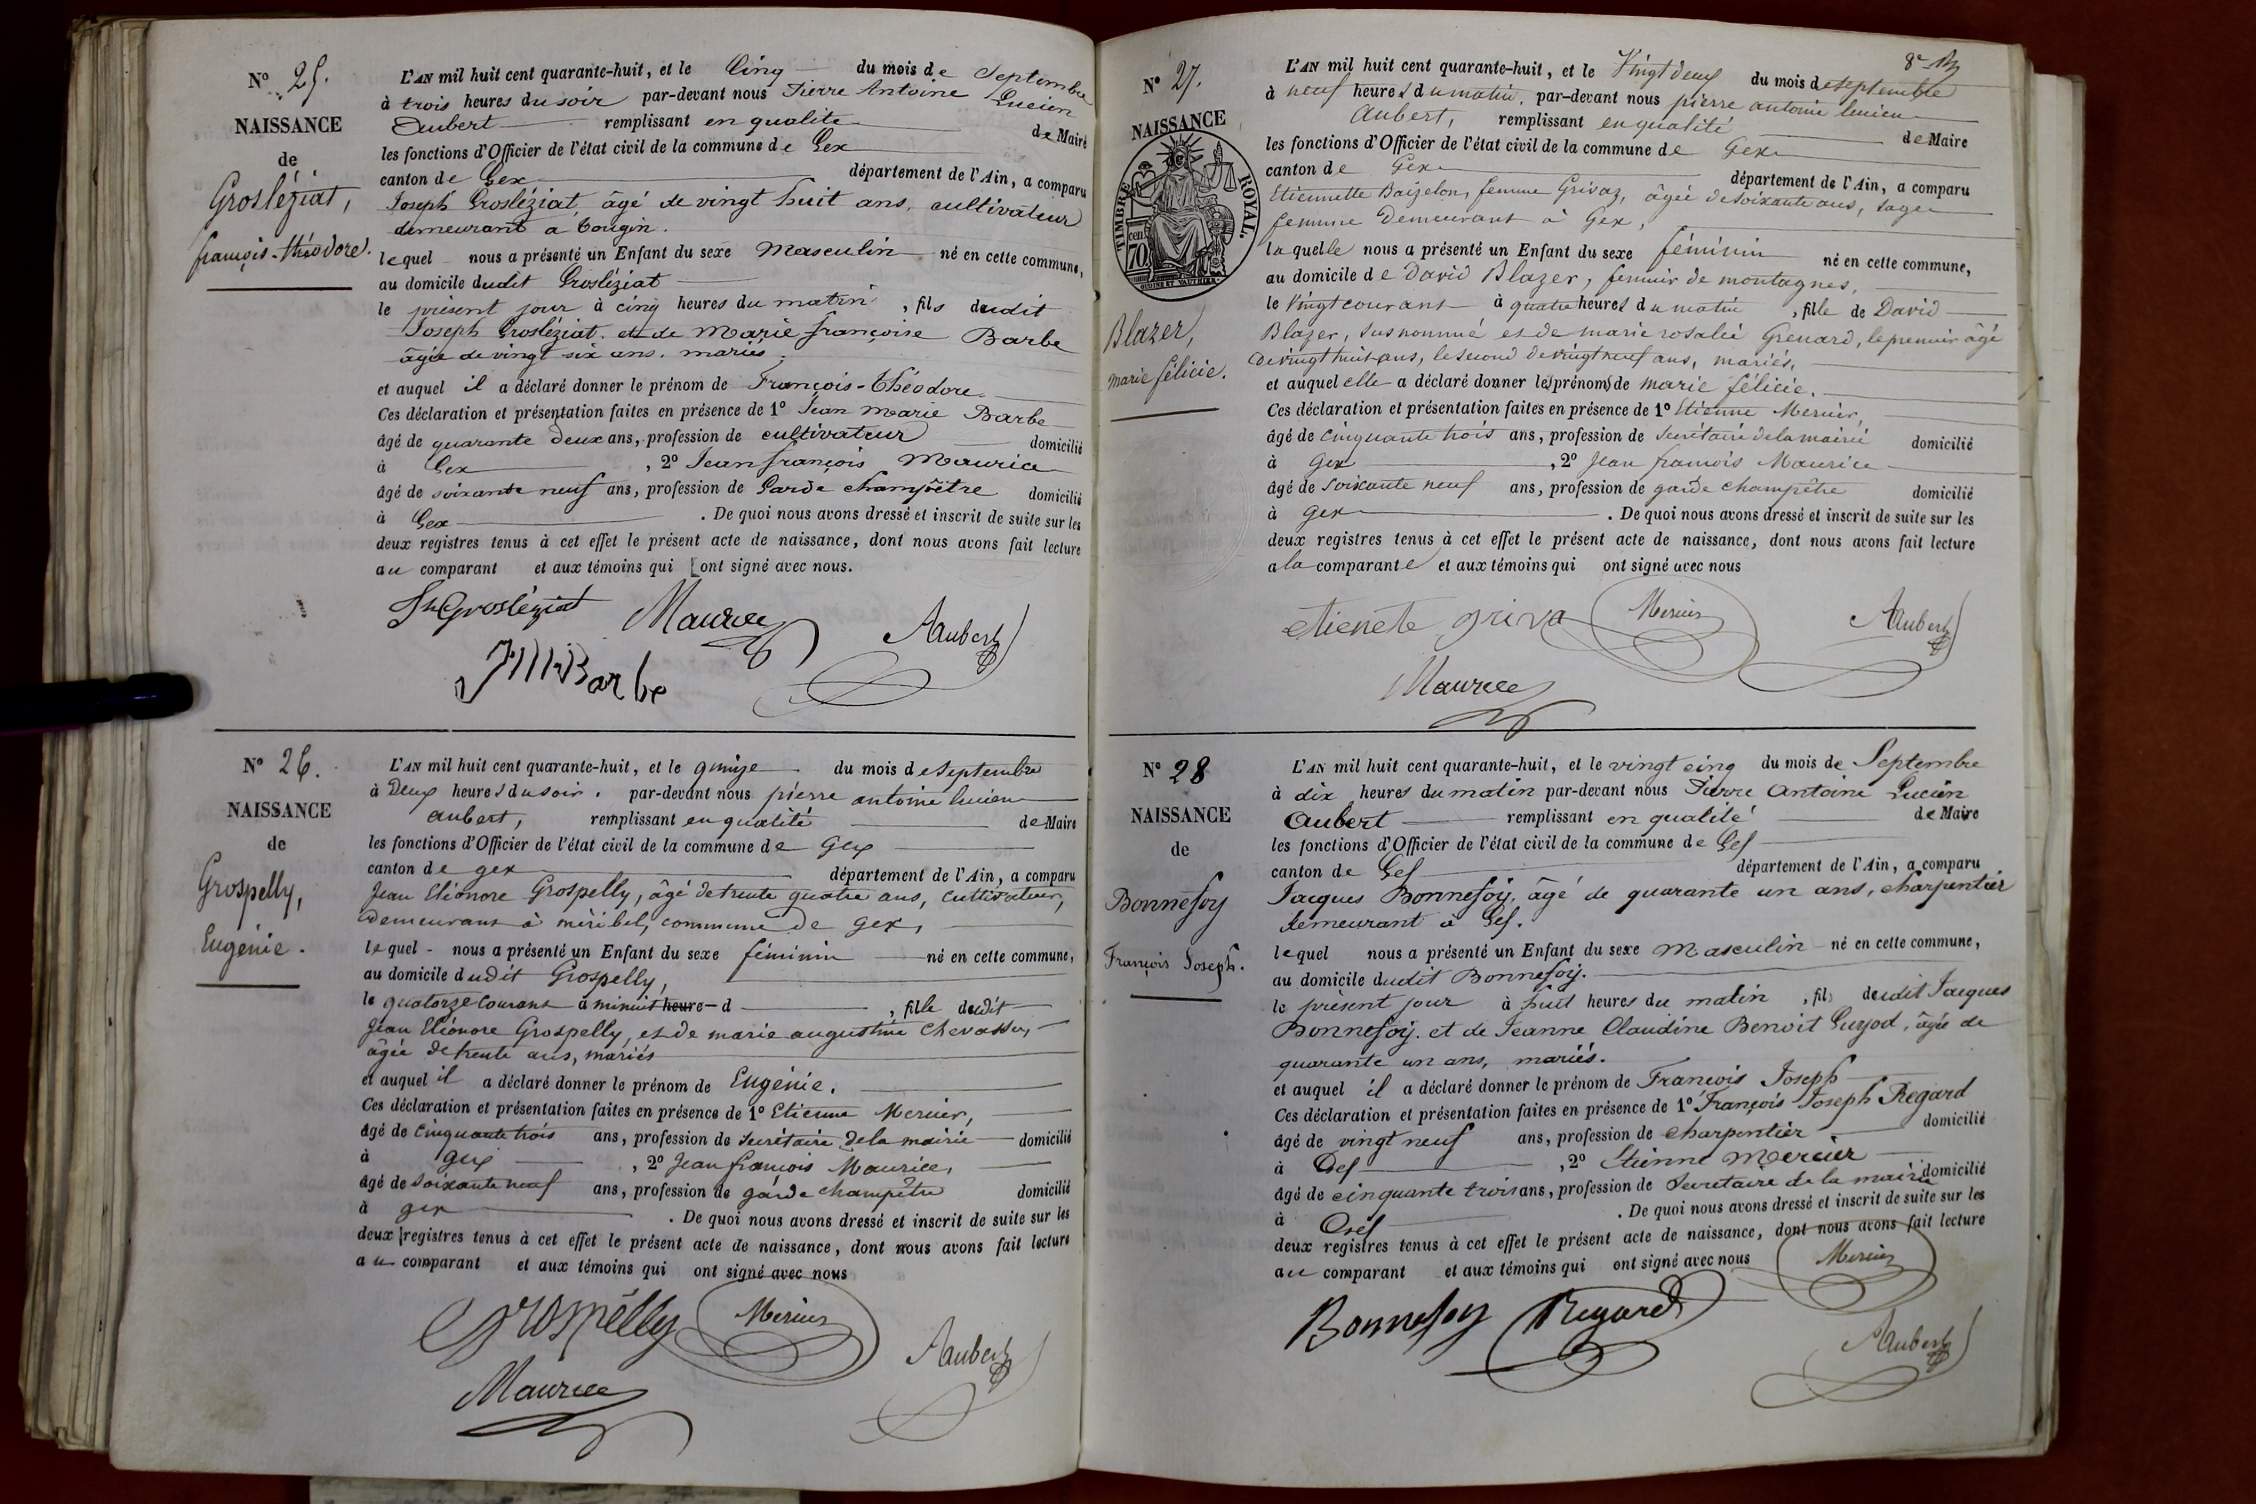 N° 25.
NAISSANCE
de
Grosléziat,
françois-théodore.
L'AN mil huit cent quarante-huit, et le Cinq du mois de Septembre
à trois heures du soir par-devant nous Pierre Antoine Lucien
Aubert remplissant en qualité de Maire
les fonctions d'Officier de l'état civil de la commune de Gex
canton de Gex département de l'Ain, a comparu
Joseph Grosléziat, âgé de vingt huit ans, cultivateur
demeurant à Tougin.
lequel nous a présenté un Enfant du sexe Masculin né en cette commune,
au domicile dudit Grosléziat
le présent jour à cinq heures du matin, fils dudit
Joseph Grosléziat et de Marie françoise Barbe
âgée de vingt six ans. mariés.
et auquel il a déclaré donner le prénom de François-Théodore.
Ces déclaration et présentation faites en présence de 1° Jean Marie Barbe
âgé de quarante deux ans, profession de cultivateur domicilié
à Gex, 2° Jean françois Maurice
âgé de soixante neuf ans, profession de Garde champêtre domicilié
à Gex. De quoi nous avons dressé et inscrit de suite sur les
deux registres tenus à cet effet le présent acte de naissance, dont nous avons fait lecture
au comparant et aux témoins qui ont signé avec nous.
Jh Grosléziat Maurice AAubert
JM Barbe
N° 26.
NAISSANCE
de
Grospelly,
Eugénie.
L'AN mil huit cent quarante-huit, et le quinze du mois de septembre
à Deux heures du soir. par-devant nous pierre antoine lucien
aubert, remplissant en qualité de Maire
les fonctions d'Officier de l'état civil de la commune de Gex
canton de gex département de l'Ain, a comparu
Jean Eléonore Grospelly, âgé de trente quatre ans, Cultivateur,
demeurant à méribel, commune de gex,
lequel nous a présenté un Enfant du sexe féminin né en cette commune,
au domicile dudit Grospelly,
le quatorze courant à minuit heure d, fille dudit
Jean Eléonore Grospelly, et de marie augustine Chevassu,
âgée de trente ans, mariés
et auquel il a déclaré donner le prénom de Eugénie.
Ces déclaration et présentation faites en présence de 1° Etienne Mercier,
âgé de cinquante trois ans, profession de secrétaire de la mairie domicilié
à gex, 2° Jean françois Maurice,
âgé de soixante neuf ans, profession de garde champêtre domicilié
à gex. De quoi nous avons dressé et inscrit de suite sur les
deux registres tenus à cet effet le présent acte de naissance, dont nous avons fait lecture
au comparant et aux témoins qui ont signé avec nous
Grospelly Mercier AAubert
Maurice
8e
N° 27.
NAISSANCE
TIMBRE ROYAL.
70 cen
Blazer,
marie félicie.
L'AN mil huit cent quarante-huit, et le Vingt deux du mois de septembre
à neuf heures du matin, par-devant nous pierre antoine lucien
Aubert, remplissant en qualité de Maire
les fonctions d'Officier de l'état civil de la commune de Gex
canton de Gex département de l'Ain, a comparu
Etiennette Baizelon, femme Grivaz, âgée de soixante ans, sage
femme demeurant à Gex,
laquelle nous a présenté un Enfant du sexe féminin né en cette commune,
au domicile de David Blazer, fermier de montagnes,
le Vingt courant à quatre heures du matin, fille de David
Blazer, susnommé et de marie rosalie Grenard, le premier âgé
de vingt huit ans, le second de vingt neuf ans, mariés,
et auquel elle a déclaré donner les prénoms de marie félicie.
Ces déclaration et présentation faites en présence de 1° Etienne Mercier,
âgé de cinquante trois ans, profession de secrétaire de la mairie domicilié
à Gex, 2° Jean françois Maurice
âgé de soixante neuf ans, profession de garde champêtre domicilié
à gex. De quoi nous avons dressé et inscrit de suite sur les
deux registres tenus à cet effet le présent acte de naissance, dont nous avons fait lecture
a la comparante et aux témoins qui ont signé avec nous
etienete griva Mercier AAubert
Maurice
N° 28
NAISSANCE
de
Bonnefoy
François Joseph.
L'AN mil huit cent quarante-huit, et le vingt cinq du mois de Septembre
à dix heures du matin par-devant nous Pierre Antoine Lucien
Aubert remplissant en qualité de Maire
les fonctions d'Officier de l'état civil de la commune de Gex
canton de Gex département de l'Ain, a comparu
Jacques Bonnefoy, âgé de quarante un ans, charpentier
demeurant à Gex.
lequel nous a présenté un Enfant du sexe Masculin né en cette commune,
au domicile dudit Bonnefoy.
le présent jour à huit heures du matin, fils dudit Jacques
Bonnefoy. et de Jeanne Claudine Benoit Gurjod, âgée de
quarante un ans, mariés.
et auquel il a déclaré donner le prénom de François Joseph
Ces déclaration et présentation faites en présence de 1° François Joseph Regard
âgé de vingt neuf ans, profession de charpentier domicilié
à Gex, 2° Etienne Mercier
âgé de cinquante trois ans, profession de Secrétaire de la mairie domicilié
à Gex. De quoi nous avons dressé et inscrit de suite sur les
deux registres tenus à cet effet le présent acte de naissance, dont nous avons fait lecture
au comparant et aux témoins qui ont signé avec nous Mercier
Bonnefoy Regard
AAubert